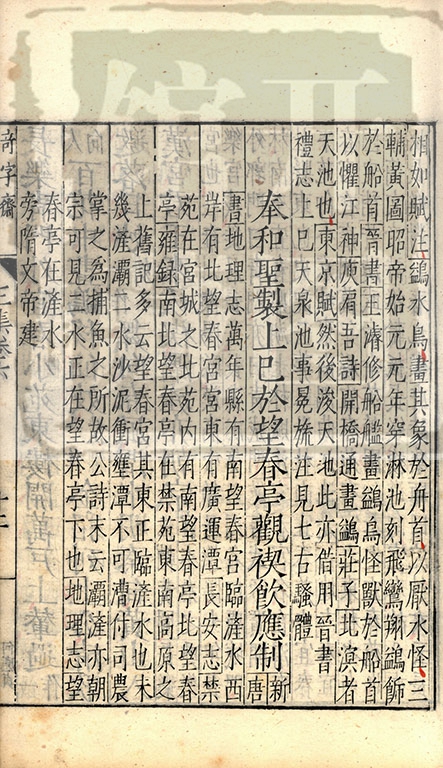 相如賦注鷁水鳥畫其象於舟首以厭水怪三
輔黃圖昭帝始元元年穿淋池刻飛鸞翔鷁飾
於船首晉書王濬修船艦畵鷁鳥怪獸於船首
以懼江神庾肩吾詩開橋通畫鷁莊子北溟者
天池也東京賦然後浚天池此亦借用晉書
禮志上巳天泉池事冕旒注見七古騷體
奉和聖製上巳於望春亭觀禊飲應制新唐
書地理志萬年縣有南望春宫臨滻水西
岸有北望春宫宫東有廣運潭長安志禁
苑在宮城之北苑內有南望春亭北望春
亭雍錄南北望春亭在禁苑東南高原之
上舊記多云望春宮其東正臨滻水也未
幾滻灞二水沙泥衝壅潭不可漕付司農
掌之為捕魚之所故公詩末云灞滻亦朝
宗可見二水正在望春亭下也地理志望
春亭在滻水
旁隋文帝建
奇字齋